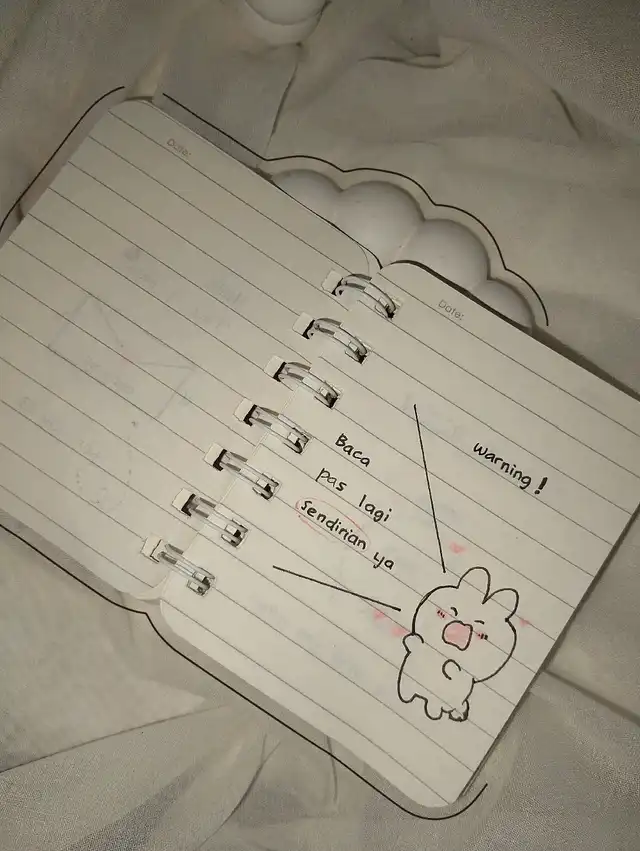 Date:
Date:
warning!
Baca
pas lagi
sendirian ya